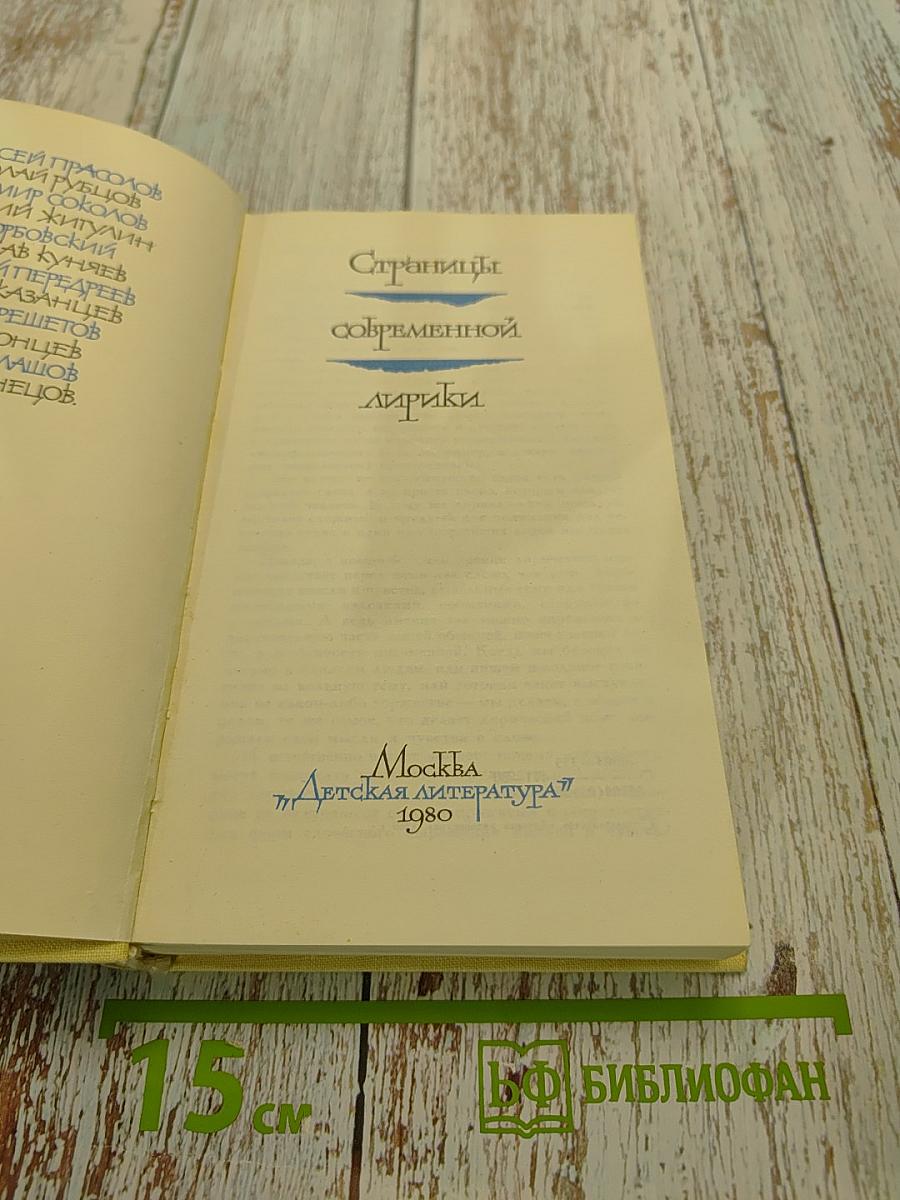 СЕЙ ПРАСОЛОВ
ЛАЙ РУБЦОВ
МИР СОКОЛОВ
ИЙ ЖИГУЛИН
РБОВСКИЙ
АВ КУНЯЕВ
Й ПЕРЕДРЕЕВ
КАЗАНЦЕВ
РЕШЕТОВ
ОНЦЕВ
ЛАШОВ
НЕЦОВ.
Страницы
современной
лирики
Москва
„Детская литература”
1980
15 см
БФ БИБЛИОФАН